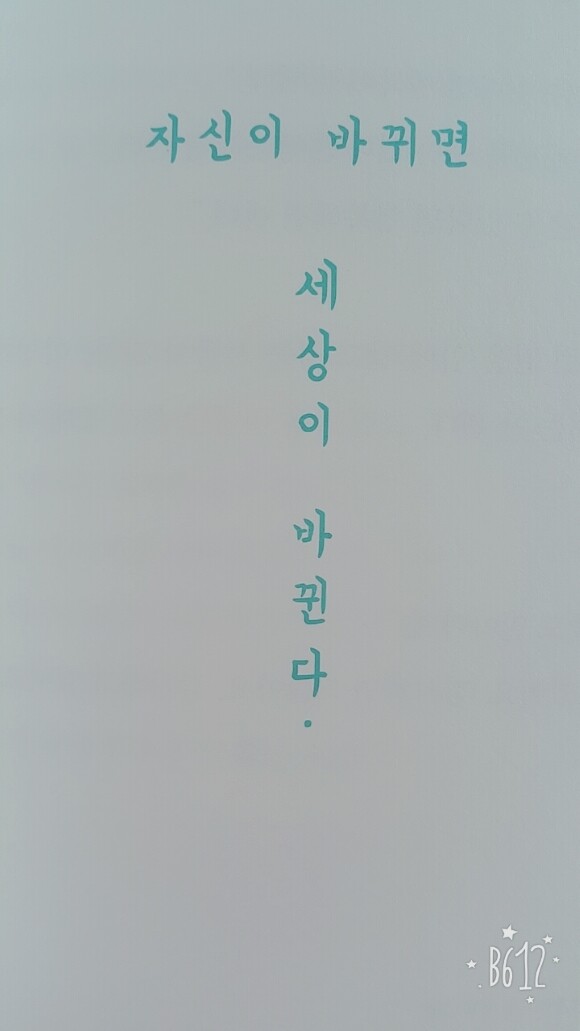 자신이 바뀌면
세상이 바뀐다.
B612